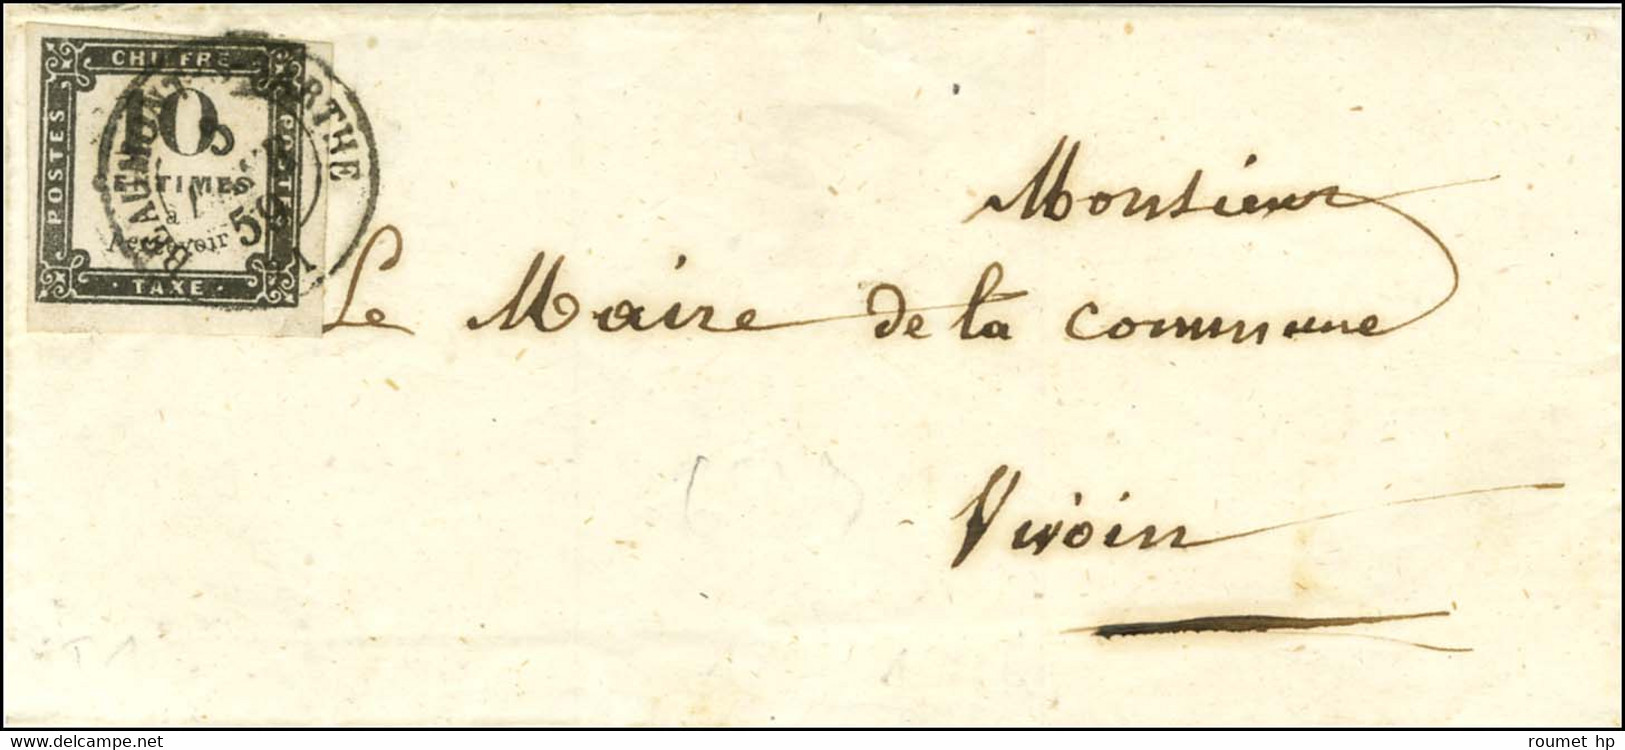 CHIFFRE
POSTES
POSTES
10
CENTIMES
à
Percevoir
TAXE
BEAUMONT-S-SARTHE
59
Monsieur
Le Maire de la commune
Vivoin
www.delcampe.net
roumet hp